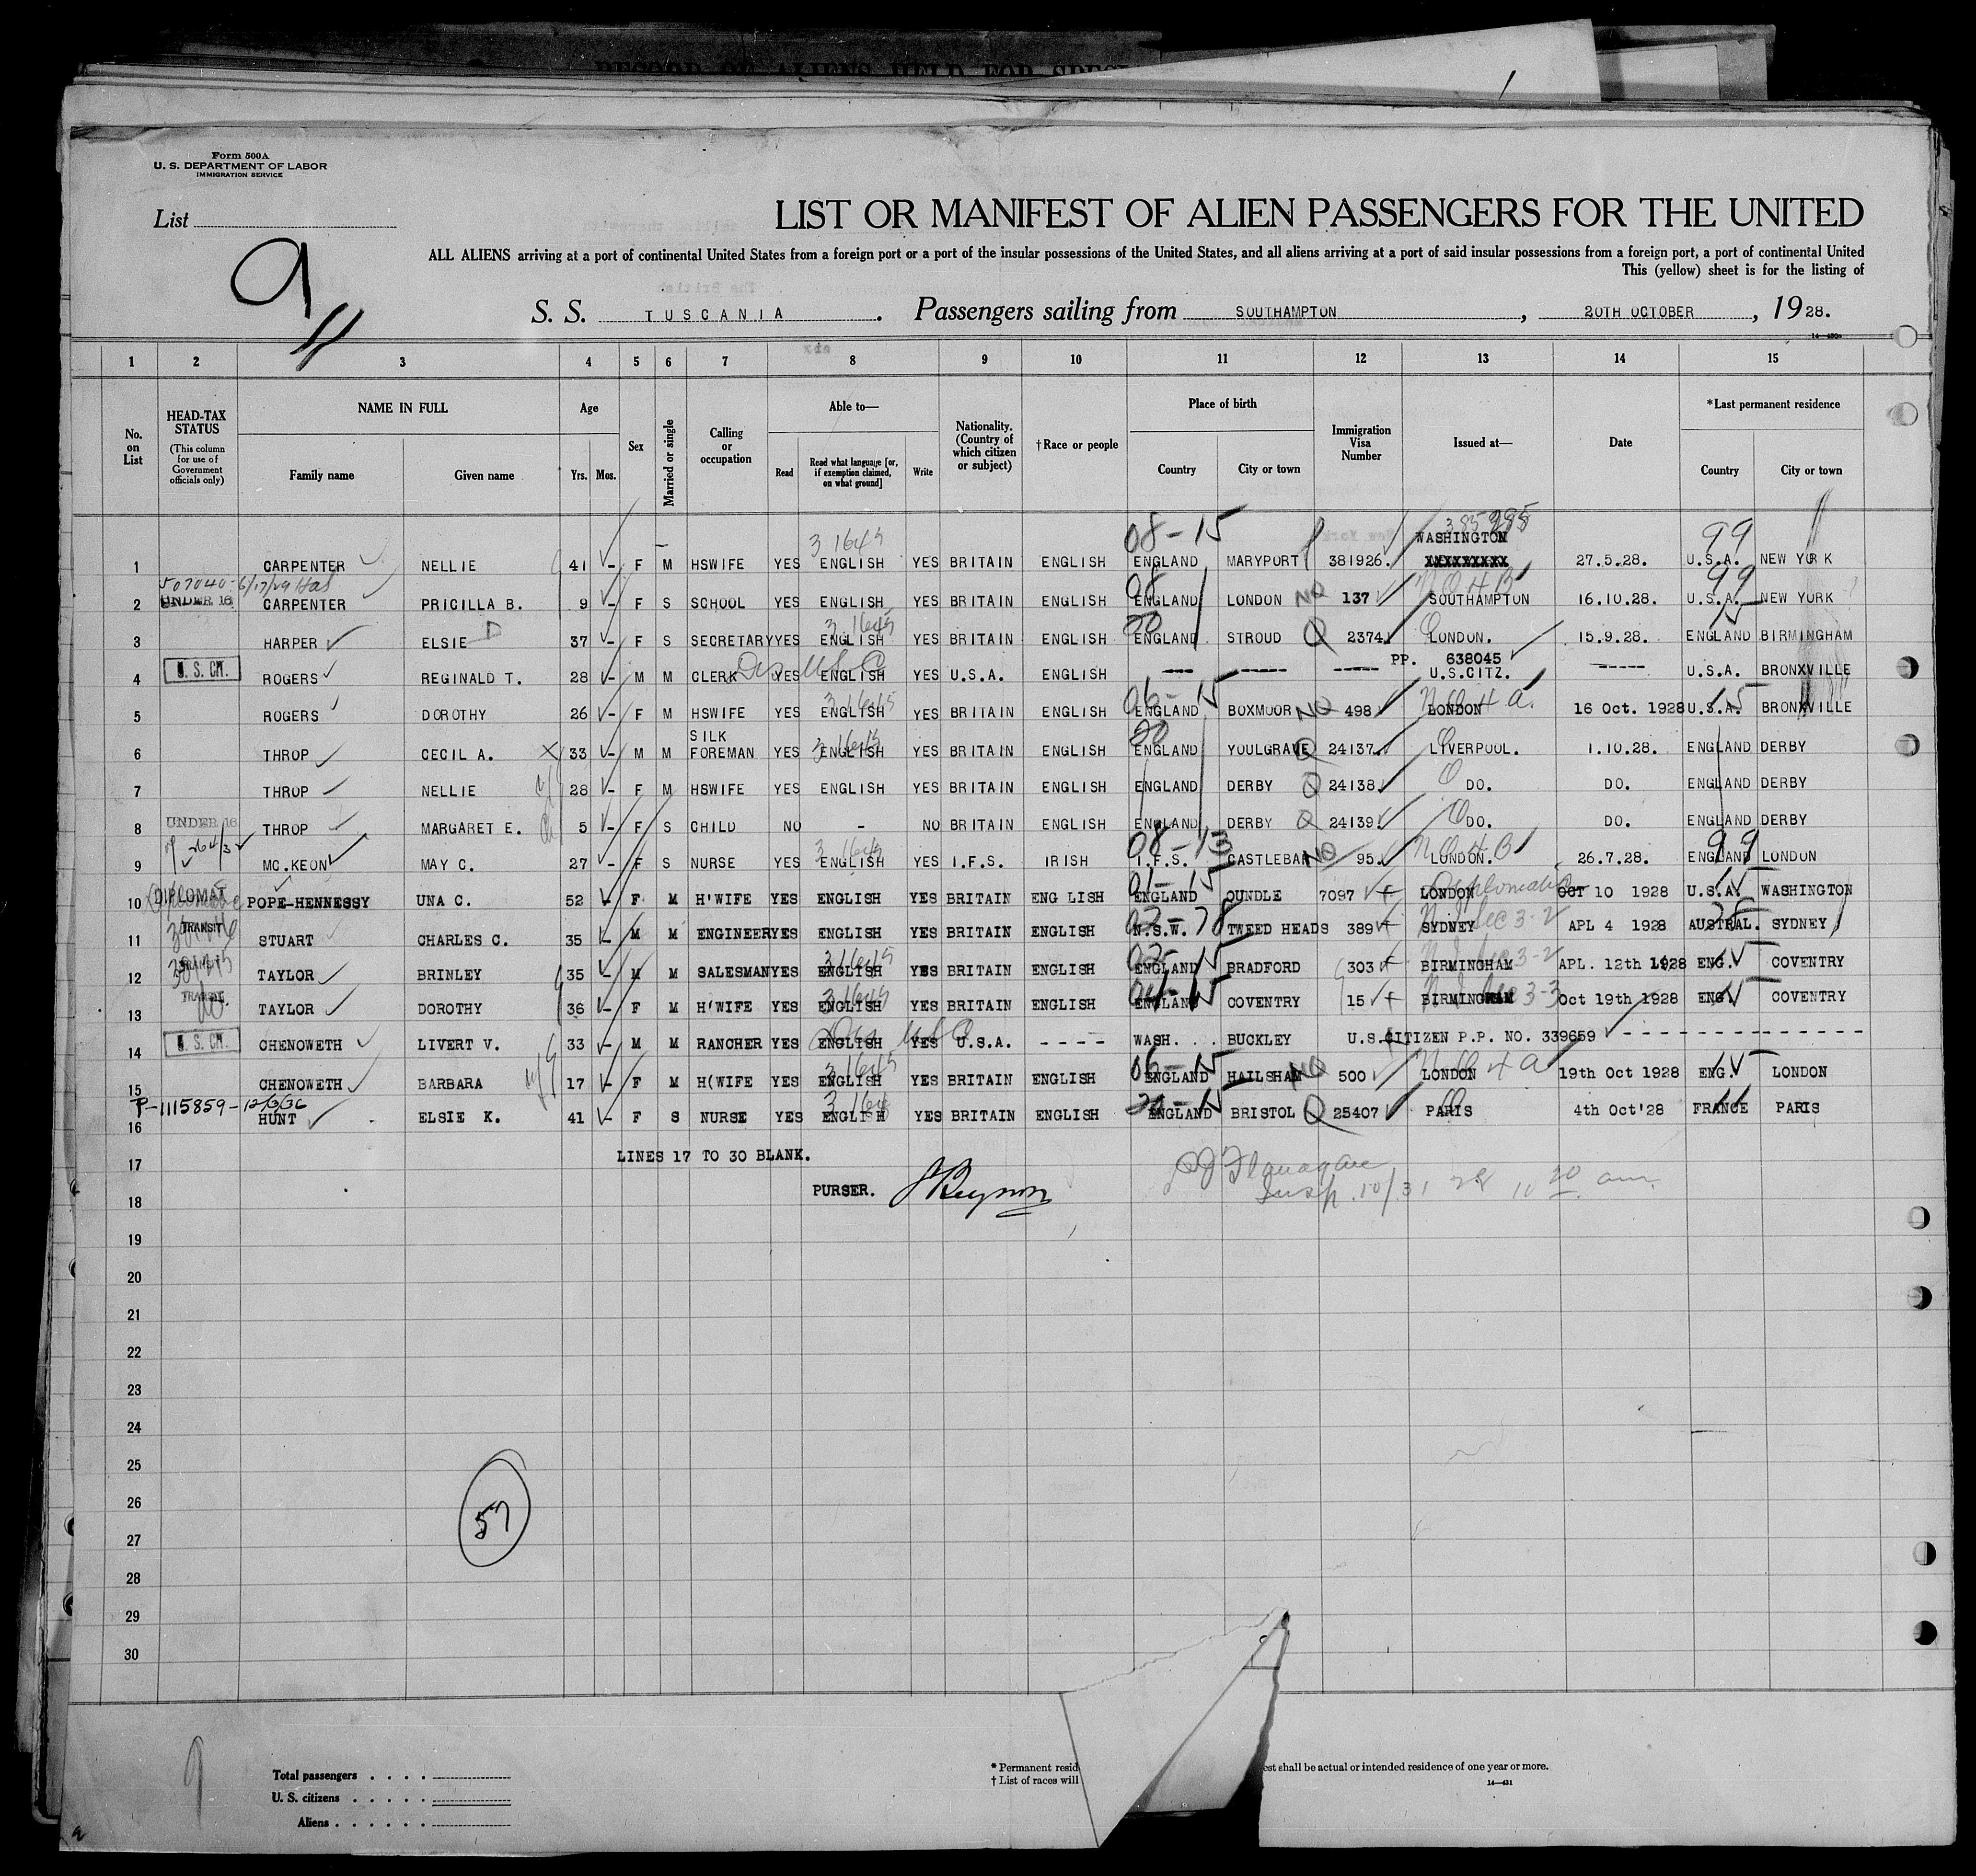 RECORD OF ALIENS HELD FOR SPECI
Form 500A
U. S. DEPARTMENT OF LABOR
IMMIGRATION SERVICE
List
9
LIST OR MANIFEST OF ALIEN PASSENGERS FOR THE UNITED
ALL ALIENS arriving at a port of continental United States from a foreign port or a port of the insular possessions of the United States, and all aliens arriving at a port of said insular possessions from a foreign port, a port of continental United
This (yellow) sheet is for the listing of
S. S. TUSCANIA. Passengers sailing from SOUTHAMPTON, 20TH OCTOBER, 1928.
1 2 3 4 5 6 7 8 9 10 11 12 13 14 15
No. on List
HEAD-TAX STATUS
(This column for use of Government officials only)
NAME IN FULL
Family name
Given name
Age
Yrs. Mos.
Sex
Married or single
Calling or occupation
Able to—
Read
Read what language [or, if exemption claimed, on what ground]
Write
Nationality. (Country of which citizen or subject)
†Race or people
Place of birth
Country
City or town
Immigration Visa Number
Issued at—
Date
*Last permanent residence
Country
City or town
3 1645 08-15 385985 99
WASHINGTON
1 CARPENTER NELLIE 41 - F M HSWIFE YES ENGLISH YES BRITAIN ENGLISH ENGLAND MARYPORT 381926. XXXXXXXXX 27.5.28. U.S.A. NEW YORK
507040-6/17/29
2 UNDER 16 CARPENTER PRICILLA B. 9 - F S SCHOOL YES ENGLISH YES BRITAIN ENGLISH ENGLAND LONDON NQ 137 SOUTHAMPTON 16.10.28. U.S.A. NEW YORK
3 HARPER ELSIE D 37 - F S SECRETARY YES ENGLISH YES BRITAIN ENGLISH ENGLAND STROUD Q 2374. LONDON. 15.9.28. ENGLAND BIRMINGHAM
PP. 638045
4 U. S. CIT. ROGERS REGINALD T. 28 - M M CLERK YES ENGLISH YES U.S.A. ENGLISH --- ----- ----- U.S.CITZ. ----- U.S.A. BRONXVILLE
5 ROGERS DOROTHY 26 - F M HSWIFE YES ENGLISH YES BRITAIN ENGLISH ENGLAND BOXMOOR NQ 498 LONDON 16 Oct. 1928 U.S.A. BRONXVILLE
6 THROP CECIL A. 33 - M M SILK FOREMAN YES ENGLISH YES BRITAIN ENGLISH ENGLAND YOULGRAVE Q 24137. LIVERPOOL. 1.10.28. ENGLAND DERBY
7 THROP NELLIE 28 - F M HSWIFE YES ENGLISH YES BRITAIN ENGLISH ENGLAND DERBY Q 24138. DO. DO. ENGLAND DERBY
8 UNDER 16 THROP MARGARET E. 5 - F S CHILD NO - NO BRITAIN ENGLISH ENGLAND DERBY Q 24139. DO. DO. ENGLAND DERBY
9 MC.KEON MAY C. 27 - F S NURSE YES ENGLISH YES I.F.S. IRISH I.F.S. CASTLEBAR NQ 95. LONDON. 26.7.28. ENGLAND LONDON
10 DIPLOMAT POPE-HENNESSY UNA C. 52 - F M H'WIFE YES ENGLISH YES BRITAIN ENG LISH ENGLAND OUNDLE 7097 LONDON Diplomatic OCT 10 1928 U.S.A. WASHINGTON
11 TRANSIT STUART CHARLES C. 35 - M M ENGINEER YES ENGLISH YES BRITAIN ENGLISH N.S.W. TWEED HEADS 389 SYDNEY APL 4 1928 AUSTRAL. SYDNEY
12 TRANSIT TAYLOR BRINLEY 35 - M M SALESMAN YES ENGLISH YES BRITAIN ENGLISH ENGLAND BRADFORD 303 BIRMINGHAM APL. 12th 1928 ENG. COVENTRY
13 TRANSIT TAYLOR DOROTHY 36 - F M H'WIFE YES ENGLISH YES BRITAIN ENGLISH ENGLAND COVENTRY 15 BIRMINGHAM Oct 19th 1928 ENG. COVENTRY
14 U. S. CIT. CHENOWETH LIVERT V. 33 - M M RANCHER YES ENGLISH YES U.S.A. ---- WASH... BUCKLEY U.S.CITIZEN P.P. NO. 339659 --------------
15 CHENOWETH BARBARA 17 - F M H(WIFE YES ENGLISH YES BRITAIN ENGLISH ENGLAND HAILSHAM NQ 500 LONDON 19th Oct 1928 ENG. LONDON
P-1115859-12/3/36
16 HUNT ELSIE K. 41 - F S NURSE YES ENGLI H YES BRITAIN ENGLISH ENGLAND BRISTOL Q 25407 PARIS 4th Oct'28 FRANCE PARIS
17 LINES 17 TO 30 BLANK.
18 PURSER. Insp. 10/31 28 10 20 am.
19
20
21
22
23
24
25
26
57
27
28
29
30
9
Total passengers . . . .
U. S. citizens . . . . .
Aliens . . . . . .
* Permanent resid
est shall be actual or intended residence of one year or more.
† List of races will
14—431